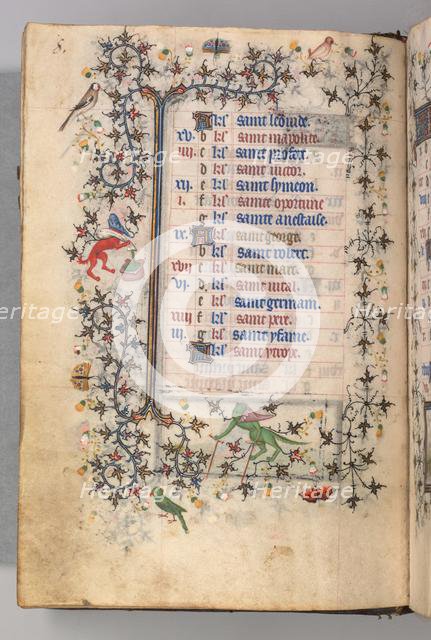 8.
A kl͛ saint leonide.
xv. b kl͛ saint mapolite.
iiii. c kl͛ saint prosert.
d kl͛ saint uictor.
xii. e kl͛ saint symeon.
i. f kl͛ sainte oportune
g kl͛ sainte anestaise.
ix. A kl͛ saint george.
b kl͛ saint robert.
xvii c kl͛ saint marc.
vi. d kl͛ saint uital.
e kl͛ saint germain.
xiiii f kl͛ saint pere.
iii. g kl͛ saint ysaine.
kl͛ saint ytrope.
Heritage
Heritage
Heritage
Heritage
Heritage
Heritage